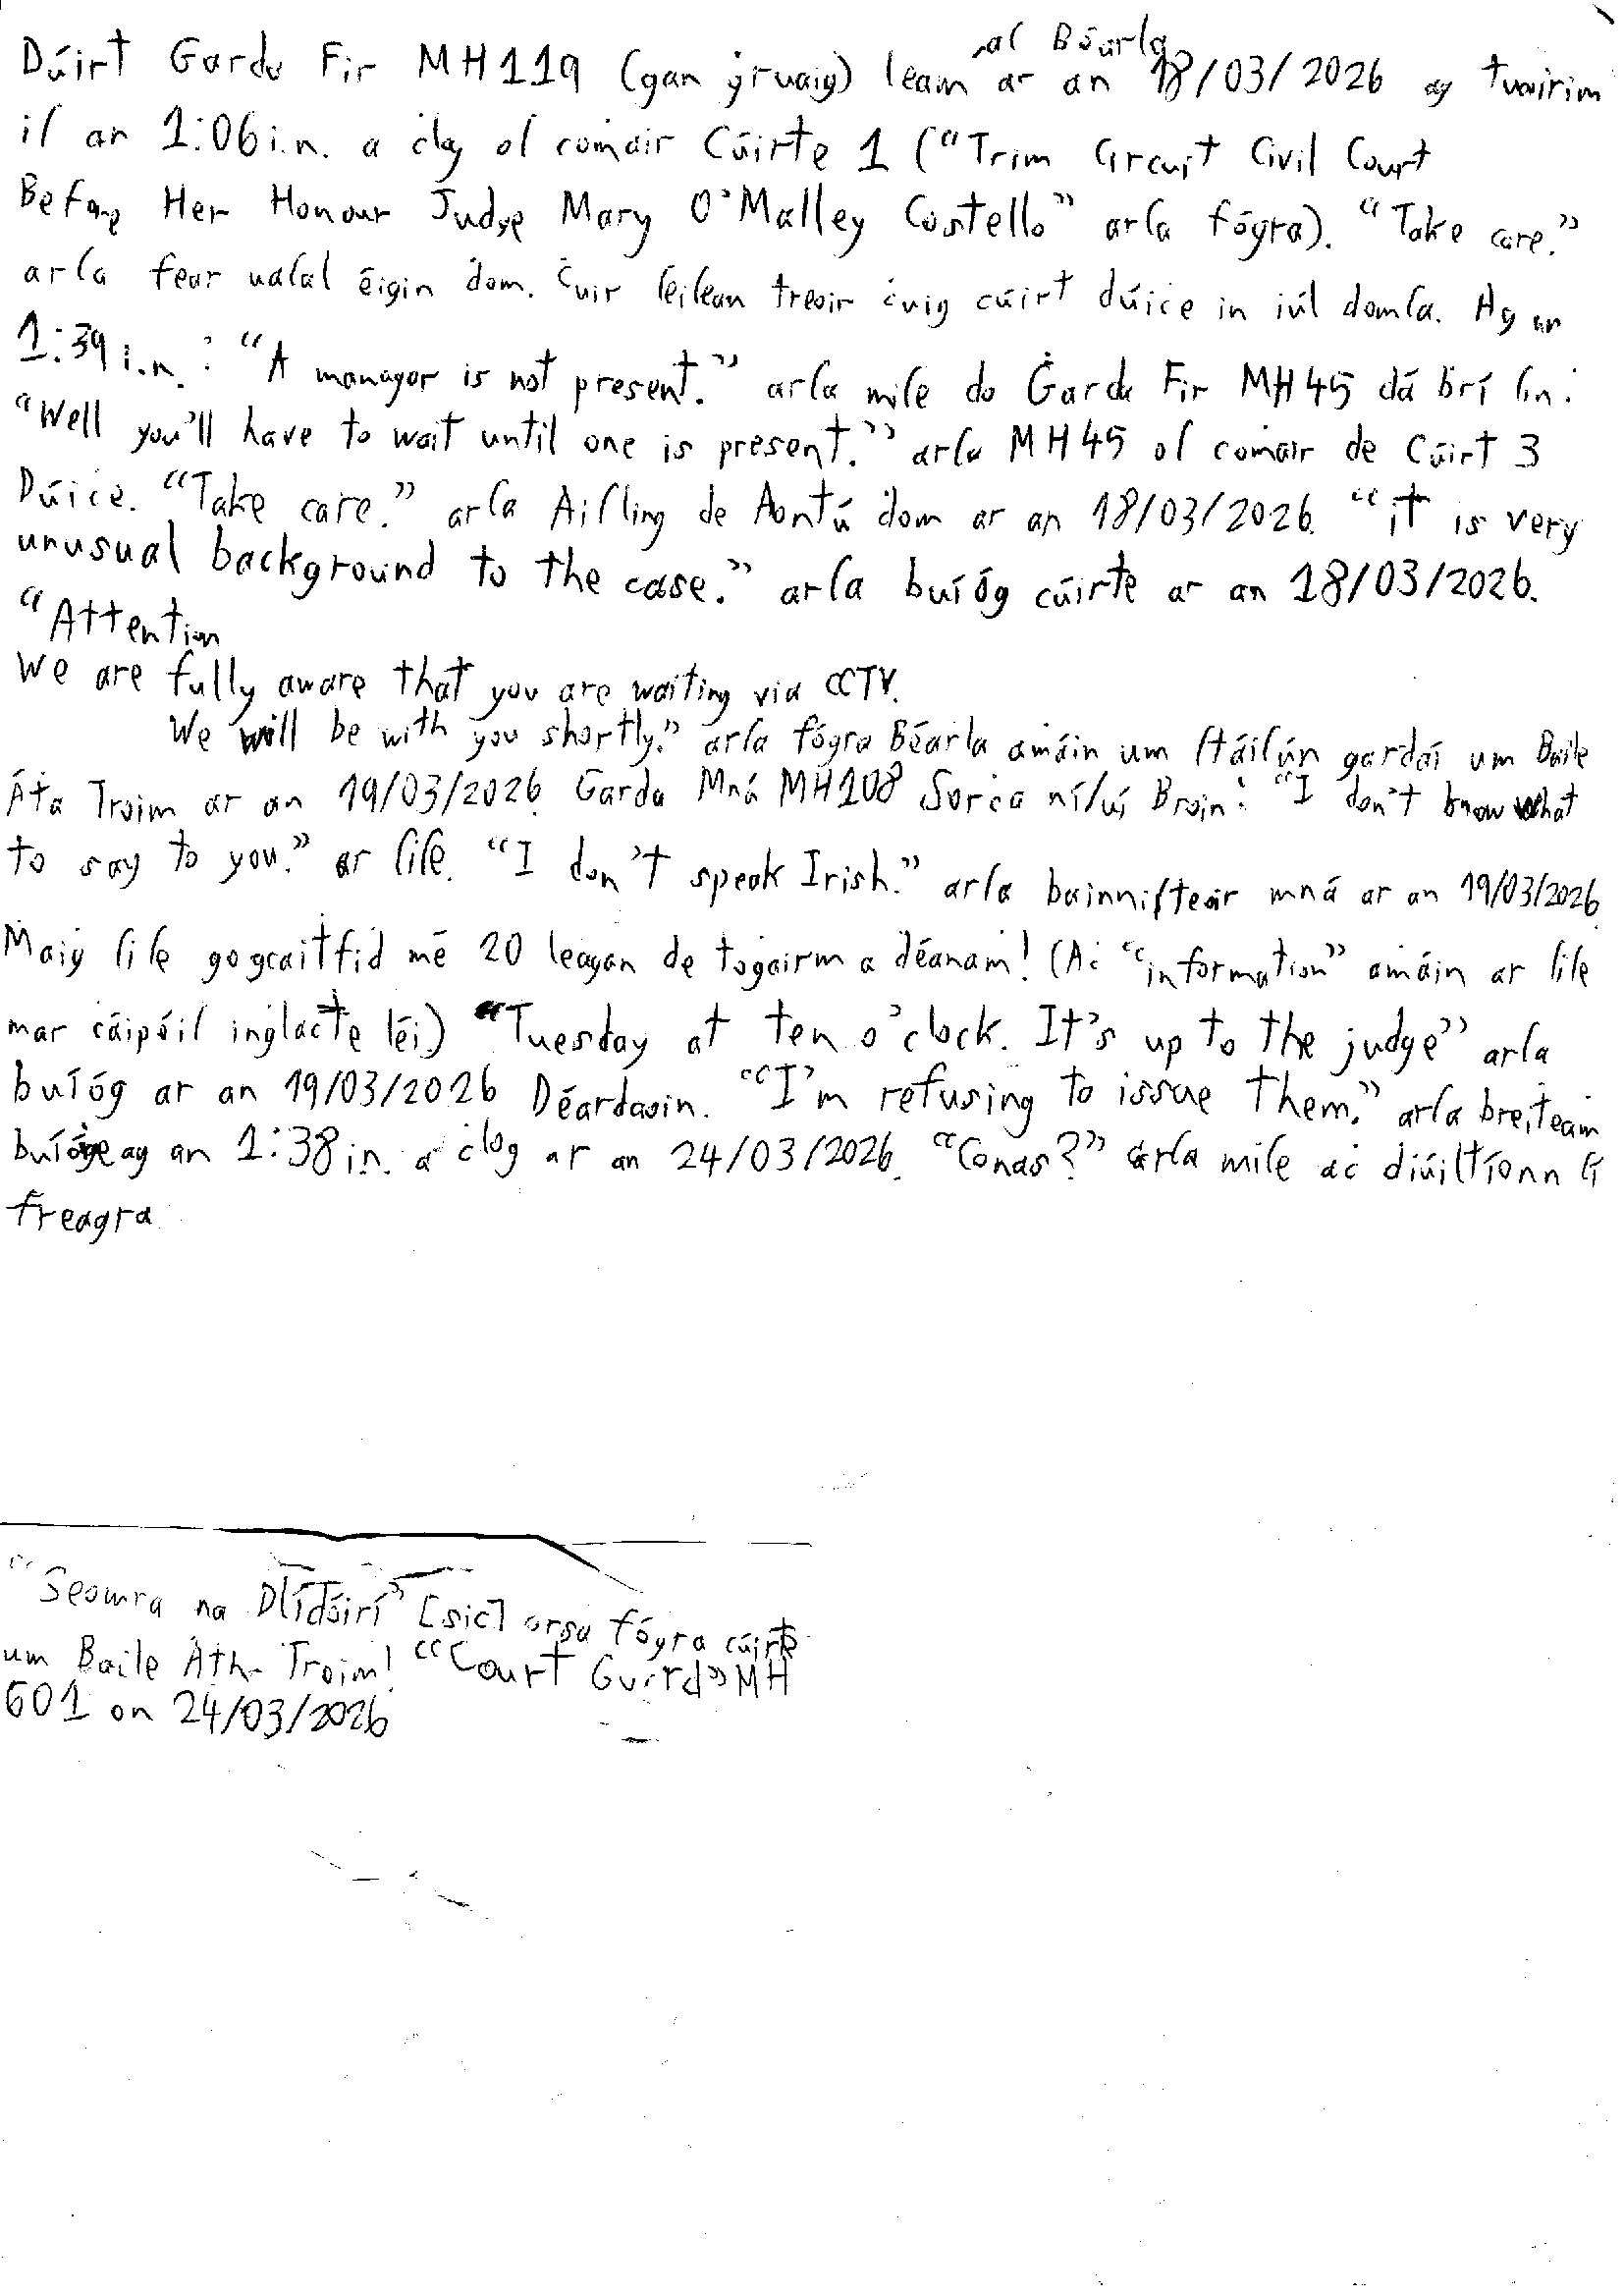 as Béarla
Dúirt Garda Fir MH119 (gan ġruaig) leam ar an 18/03/2026 ag tuairim
is an 1:06 i.n. a ċlog os comair Cúirte 1 (“Trim Circuit Civil Court
Before Her Honour Judge Mary O'Malley Costello” arsa fógra). “Take care.”
arsa fear uasal éigin dom. Ċuir seisean treoir ċuig cúirt dúiċe in iúl domsa. Ag an
1:39 i.n.: “A manager is not present.” arsa mise do Ġarda Fir MH45 dá ḃrí sin:
“Well you'll have to wait until one is present.” arsa MH45 os comair de Cúirt 3
Dúiċe. “Take care.” arsa Aisling de Aontú dom ar an 18/03/2026. “it is very
unusual background to the case.” arsa buíóg cúirte ar an 18/03/2026.
“Attention
We are fully aware that you are waiting via CCTV.
We will be with you shortly.” arsa fógra Béarla amáin um stáisiún gardaí um Baile
Áṫa Troim ar an 19/03/2026. Garda Mná MH108 Sorċa ní/uí Broin: “I don't know what
to say to you.” ar sise. “I don't speak Irish.” arsa bainnisteoir mná ar an 19/03/2026.
Maiġ sise go gcaitfid mé 20 leagan de togairm a déanam! (Aċ “information” amáin ar sise
mar cáipéis inglacṫe léi) “Tuesday at ten o'clock. It's up to the judge” arsa
buíóg ar an 19/03/2026 Déardaoin. “I'm refusing to issue them.” arsa breiṫeam
buíóige ag an 1:38 i.n. a ċlog ar an 24/03/2026. “Conas?” arsa mise aċ diúiltíonn sí
freagra.
“Seomra na Dlíḋóirí” [sic] arsa fógra cúirte
um Baile Átha Troim! “Court Guard” MH
601 on 24/03/2026